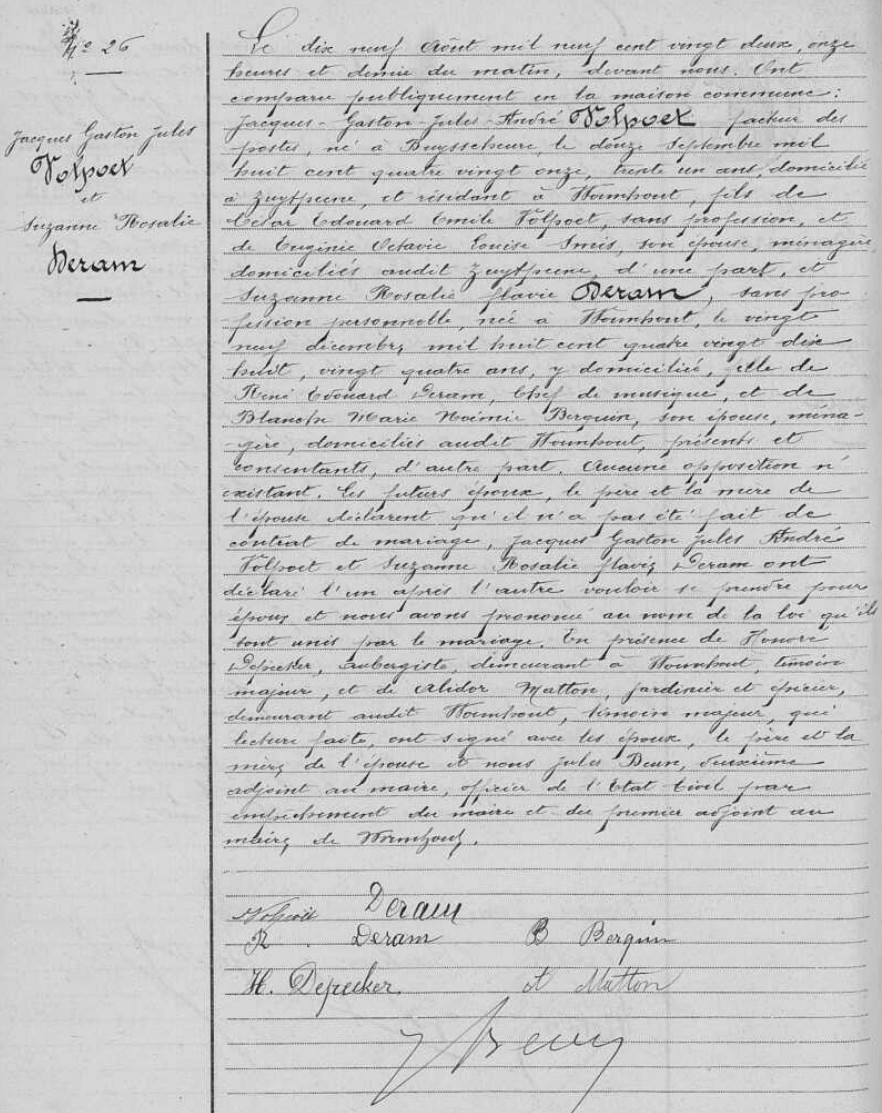 N° 26
Jacques Gaston Jules
Volpoet
et
Suzanne Rosalie
Deram
Le dix neuf Août mil neuf cent vingt deux, onze
heures et demie du matin, devant nous. Ont
comparu publiquement en la maison commune:
Jacques-Gaston-Jules-André Volpoet facteur des
postes, né à Buysscheure, le douze Septembre mil
huit cent quatre vingt onze, trente un ans, domicilié
à Zuytpeene, et résidant à Wormhout, fils de
César Edouard Emile Volpoet, sans profession, et
de Eugénie Octavie Louise Smis, son épouse, ménagère,
domiciliés audit Zuytpeene, d'une part, et
Suzanne Rosalie Flavie Deram, sans pro-
fession personnelle, née à Wormhout, le vingt
neuf décembre mil huit cent quatre vingt dix
huit, vingt quatre ans, y domiciliée, fille de
René Edouard Deram, Chef de musique, et de
Blanche Marie Noémie Berquin, son épouse, ména-
gère, domiciliés audit Wormhout, présents et
consentants, d'autre part. Aucune opposition n'
existant. Les futurs époux, le père et la mère de
l'épouse déclarent qu'il n'a pas été fait de
contrat de mariage, Jacques Gaston Jules André
Volpoet et Suzanne Rosalie Flavie Deram ont
déclaré l'un après l'autre vouloir se prendre pour
époux et nous avons prononcé au nom de la loi qu'ils
sont unis par le mariage. En présence de Honoré
Depecker, aubergiste, demeurant à Wormhout, témoin
majeur, et de Alidor Matton, jardinier et épicier,
demeurant audit Wormhout, témoin majeur, qui
lecture faite, ont signé avec les époux, le père et la
mère de l'épouse et nous Jules Beun, deuxième
adjoint au maire, officier de l'Etat Civil par
empêchement du maire et du premier adjoint au
maire de Wormhout.
Volpoët Deram
R. Deram B Berquin
H. Depecker. A Matton
J Beun